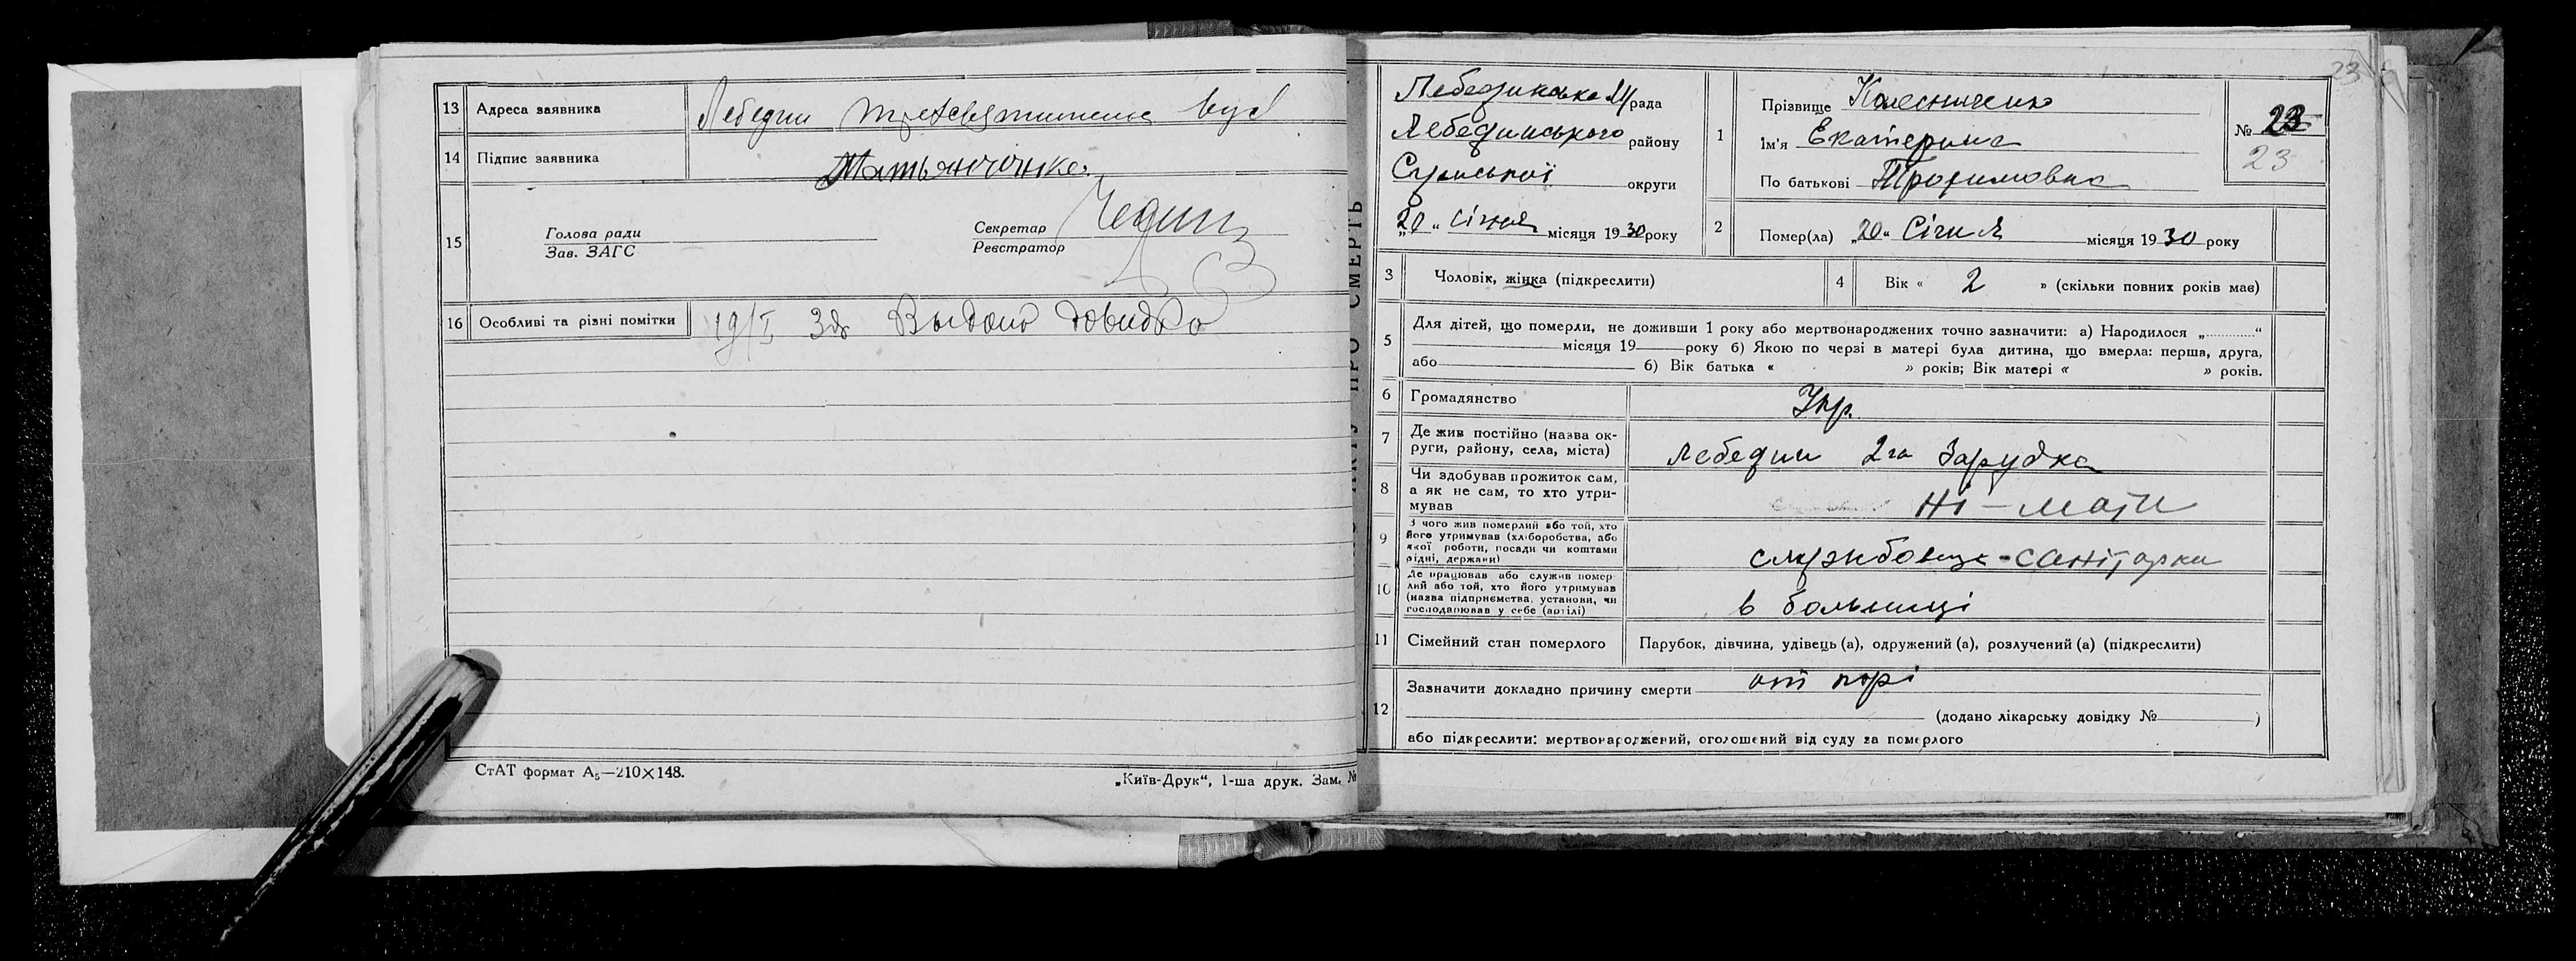 13 Адреса заявника Лебедин Трехсвятительс вул
14 Підпис заявника Матьянченко
15 Голова ради
Зав. ЗАГС
Секретар
Реєстратор
16 Особливі та різні помітки 19/I 30 Выдано довидка
СтАТ формат А₅—210×148.
„Київ-Друк“, 1-ша друк. Зам. №
СМЕРТЬ
23
Лебединська рада
Лебединського району
Сумської округи
„20“ січня місяця 1930 року
1 Прізвище Колесниченко
Ім'я Екатерина
По батькові Трофимовна
№ 23
23
2 Помер(ла) „20“ Січня місяця 1930 року
3 Чоловік, жінка (підкреслити)
4 Вік « 2 » (скільки повних років мав)
5 Для дітей, що померли, не доживши 1 року або мертвонароджених точно зазначити: а) Народилося „............“
місяця 19 року б) Якою по черзі в матері була дитина, що вмерла: перша, друга,
або б) Вік батька « » років; Вік матері « » років.
6 Громадянство Укр.
7 Де жив постійно (назва округи, району, села, міста) Лебедин 2га Зарудка
8 Чи здобував прожиток сам,
а як не сам, то хто утри-
мував Ні – мати
9 З чого жив померлий або той, хто
його утримував (хліборобства, або
якої роботи, посади чи коштами
рідні, держави) службовец - санітарка
10 Де працював або служив помер
лий або той, хто його утримував
(назва підприємства, установи, чи
господарював у себе (артілі) в больниці
11 Сімейний стан померлого Парубок, дівчина, удівець (а), одружений (а), розлучений (а) (підкреслити)
12 Зазначити докладно причину смерти от корі
(додано лікарську довідку № )
або підкреслити: мертвонароджений, оголошений від суду за померлого